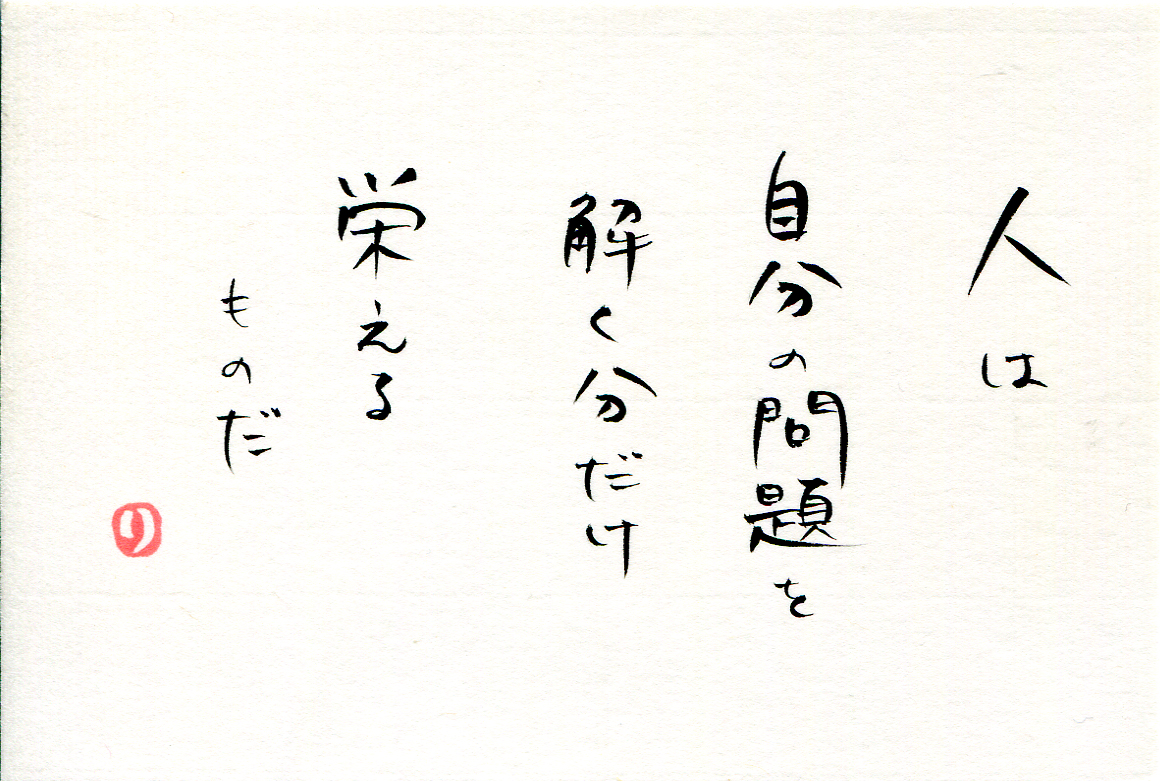 人は
自分の問題を
解く分だけ
栄える
ものだ
り